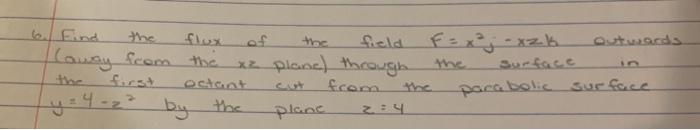 6. Find the flux of the field F = x²j - xzk outwards
(away from the xz plane) through the surface in
the first octant cut from the parabolic surface
y = 4 - z² by the plane z = 4